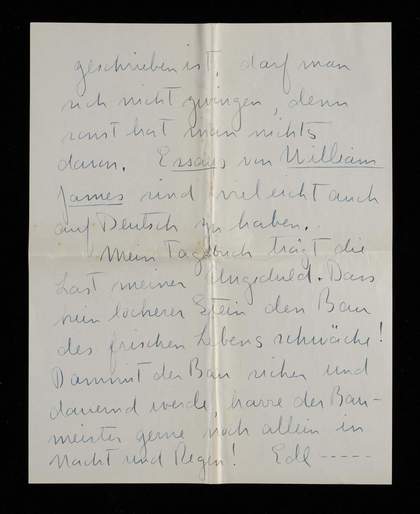 geschrieben ist, darf man
sich nicht zwingen, denn
sonst hat man nichts
davon. Essays von William
James sind vielleicht auch
auf Deutsch zu haben.
Mein Tagebuch trägt die
Last meiner Ungeduld. Dass
kein lockerer Stein den Bau
des frischen Lebens schwäche!
Dammit der Bau sicher und
dauernd werde, harre der Bau-
meister gerne noch allein in
Nacht und Regen! Edl -----